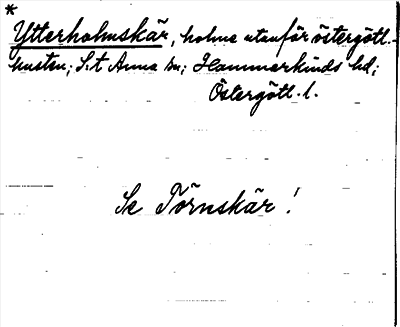 *
Ytterholmskär, holme utanför östergötl.-
kusten; S:t Anna sn; Hammarkinds hd;
Östergötl. l.
Se Törnskär!